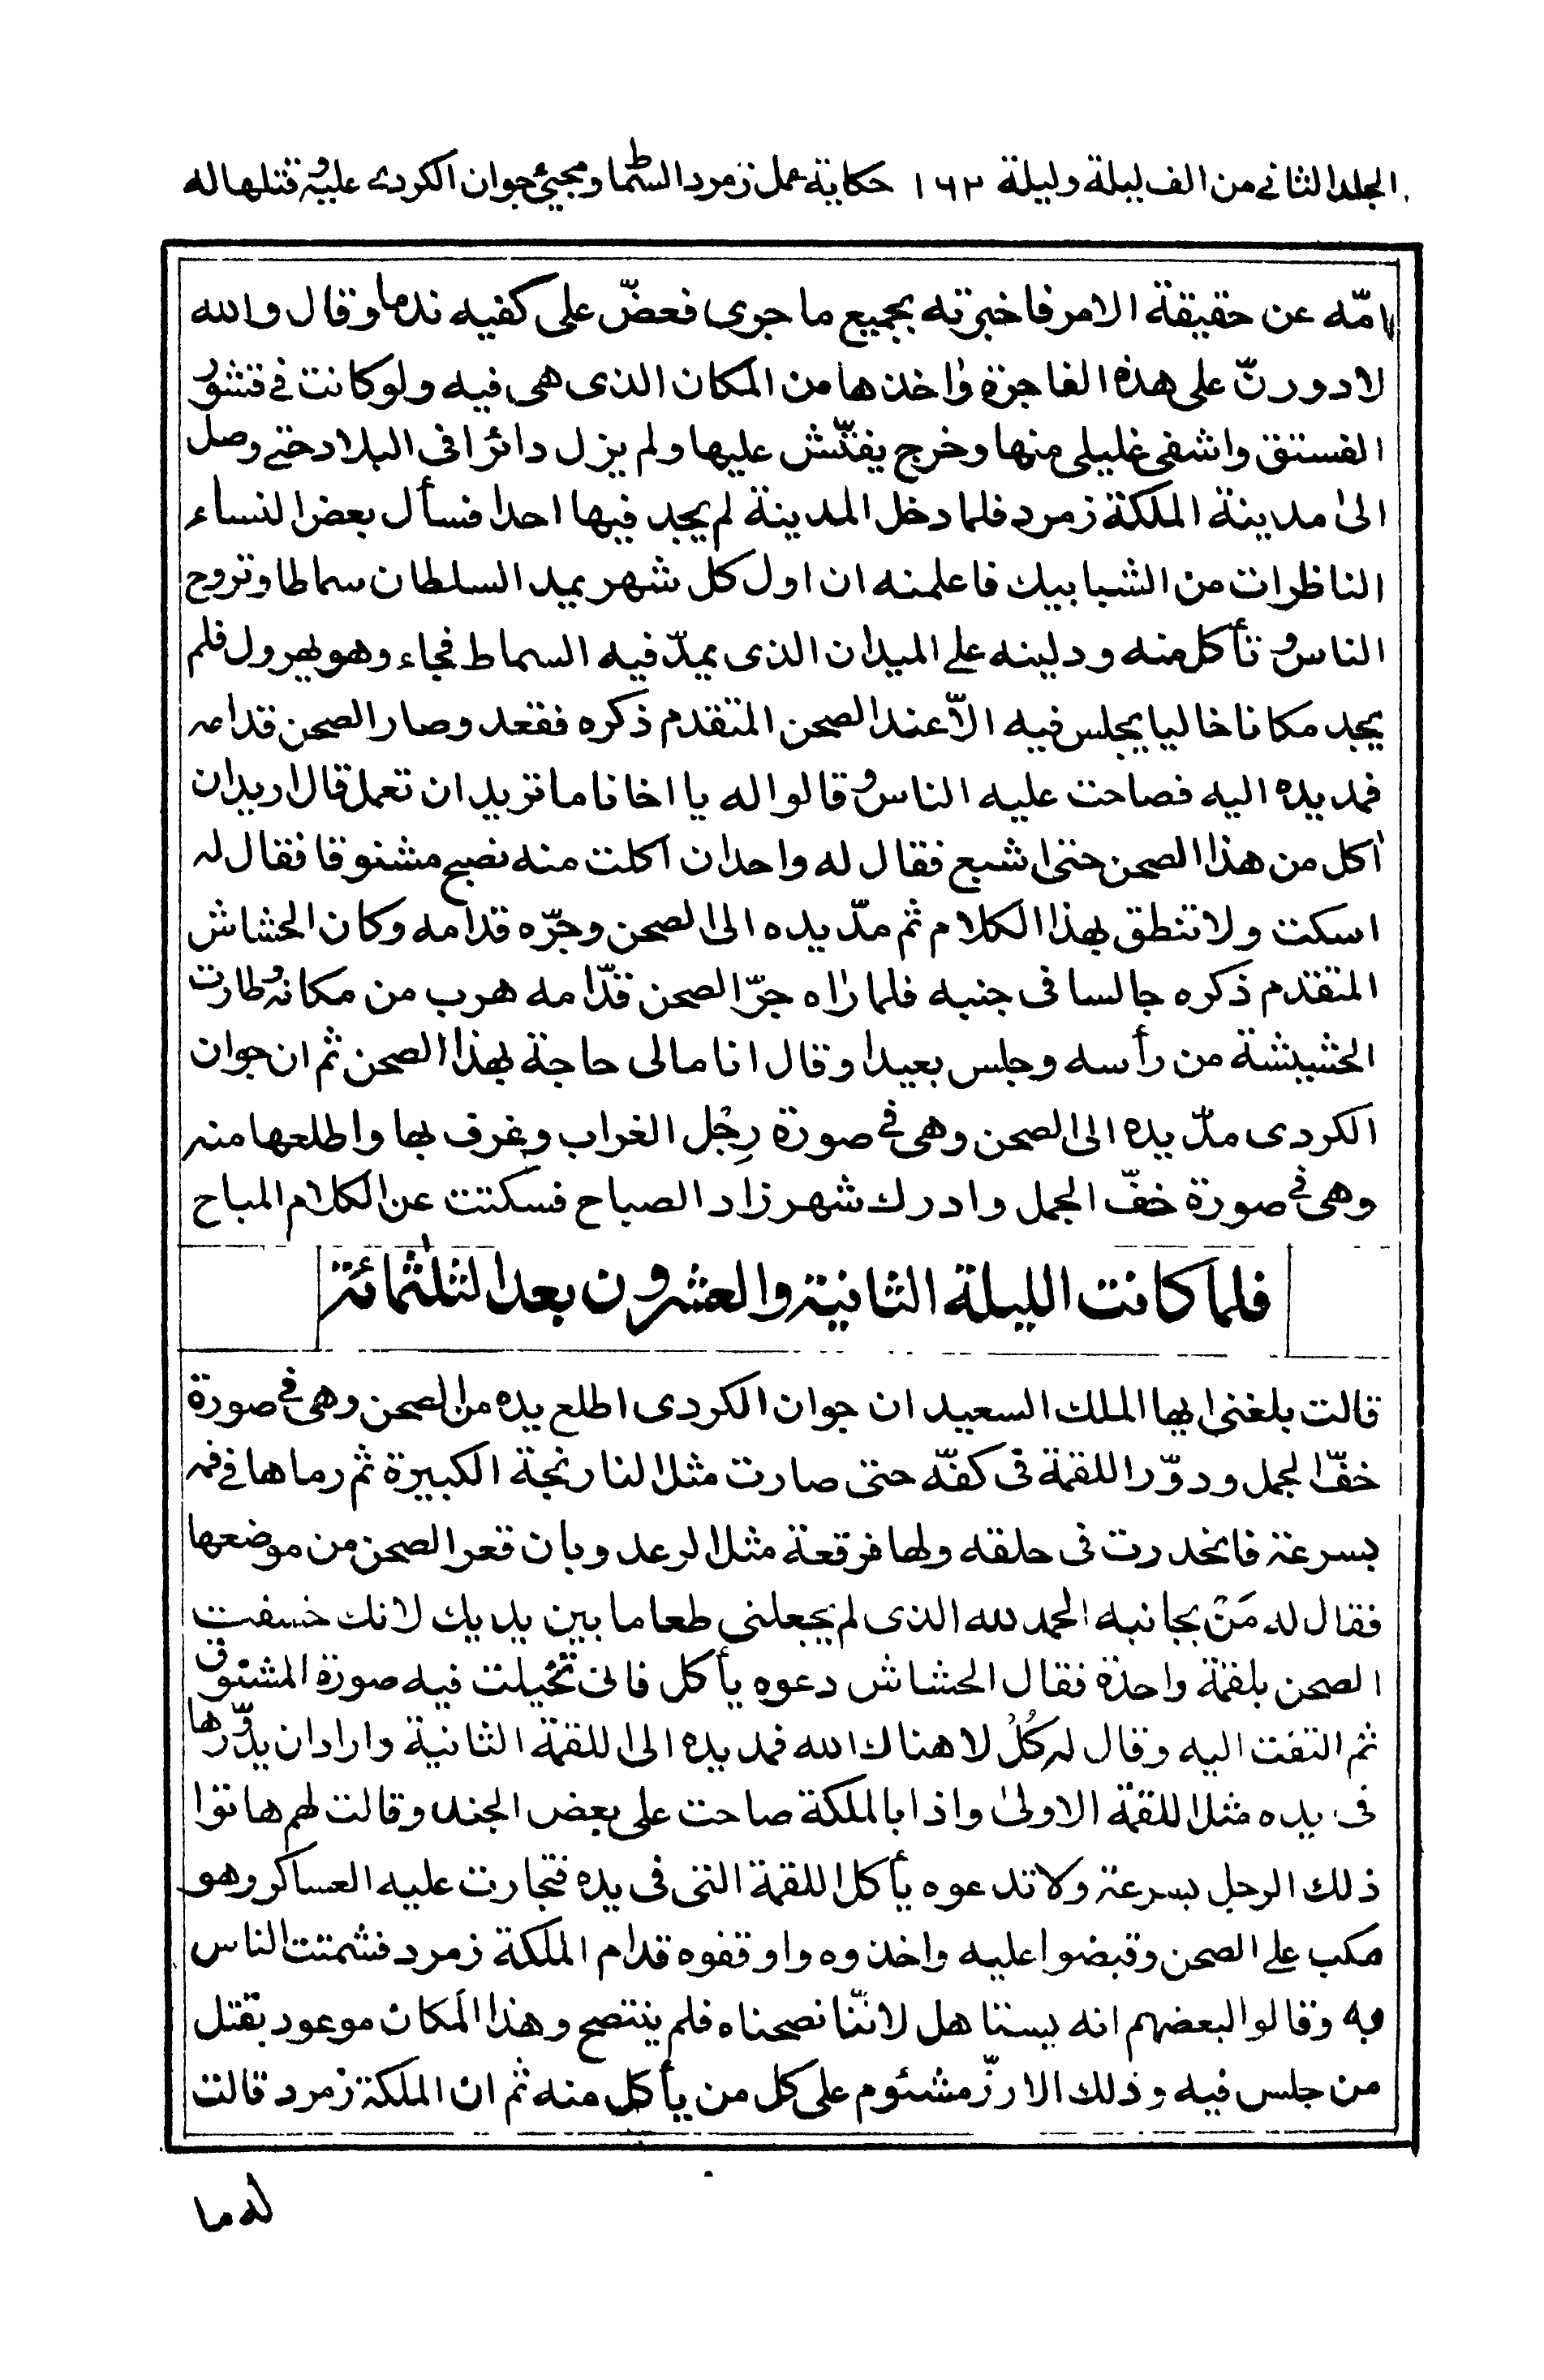 الجلد الثاني من الف ليلة وليلة ١٦٢ حكاية عمل زمرد السماط ومجيئ جوان الكردي عليه وقتلها له
امّه عن حقيقة الامر فاخبرته بجميع ما جرى فعضّ على كفيه ندما وقال والله
لادورنّ على هذه الفاجرة واٰخذها من المكان الذى هى فيه ولو كانت في قشور
الفستق واشفى غليلى منها وخرج يفتّش عليها ولم يزل دائرا فى البلاد حتى وصل
الىٰ مدينة الملكة زمرد فلما دخل المدينة لم يجد فيها احدا فسأل بعض النساء
الناظرات من الشبابيك فاعلمنه ان اول كل شهر يمد السلطان سماطا وتروح
الناس وتأكل منه ودلينه على الميدان الذى يمدّ فيه السماط فجاء وهو يهرول فلم
يجد مكانا خاليا يجلس فيه الاّ عند الصحن المتقدم ذكره فقعد وصار الصحن قدامه
فمد يده اليه فصاحت عليه الناس وقالوا له يا اخانا ما تريد ان تعمل قال اريد ان
اٰكل من هذا الصحن حتى اشبع فقال له واحد ان اكلت منه تصبح مشنوقا فقال له
اسكت ولا تنطق بهذا الكلام ثم مدّ يده الى الصحن وجرّه قدامه وكان الحشاش
المتقدم ذكره جالسا فى جنبه فلما راٰه جرّ الصحن قدّامه هرب من مكانه وطارت
الحشيشة من رأسه وجلس بعيدا وقال انا مالى حاجة بهذا الصحن ثم ان جوان
الكردى مدّ يده الى الصحن وهى في صورة رِجْل الغراب وغرف بها واطلعها منه
وهى في صورة خفّ الجمل وادرك شهرزاد الصباح فسكتت عن الكلام المباح
فلما كانت الليلة الثانية والعشرون بعد الثلثمائة
قالت بلغنى ايها الملك السعيد ان جوان الكردى اطلع يده من الصحن وهى في صورة
خفّ الجمل ودوّر اللقمة فى كفّه حتى صارت مثل النارنجة الكبيرة ثم رماها في فمه
بسرعة فانحدرت فى حلقه ولها فرقعة مثل الرعد وبان قعر الصحن من موضعها
فقال له مَنْ بجانبه الحمد لله الذى لم يجعلنى طعاما بين يديك لانك خسفت
الصحن بلقمة واحدة فقال الحشاش دعوه يأكل فانى تخيلت فيه صورة المشنوق
ثم التفت اليه وقال له كُلْ لا هناك الله فمد يده الى اللقمة الثانية واراد ان يدوّرها
فى يده مثل اللقمة الاولىٰ واذا بالملكة صاحت على بعض الجند وقالت لهم هاتوا
ذلك الرجل بسرعة ولا تدعوه يأكل اللقمة التى فى يده فتجارت عليه العساكر وهو
مكب على الصحن وقبضوا عليه واخذوه واوقفوه قدام الملكة زمرد فشمتت الناس
به وقالوا لبعضهم انه يستاهل لانّنا نصحناه فلم ينتصح وهذا المكان موعود بقتل
من جلس فيه وذلك الارزّ مشئوم على كل من يأكل منه ثم ان الملكة زمرد قالت
له ما